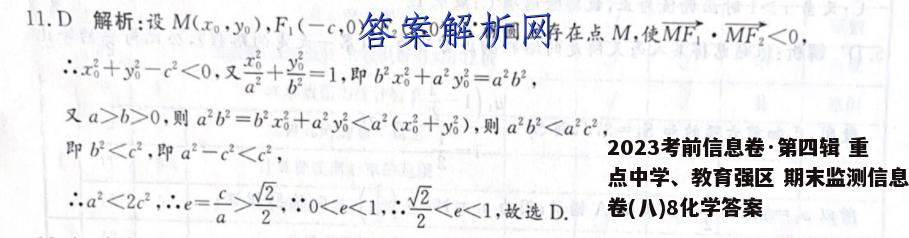 11. D 解析:设 M(x₀,y₀),F₁(-c,0 答案解析网 圆 存在点 M,使MF₁·MF₂<0,
∴x₀²+y₀²-c²<0,又x₀²/a²+y₀²/b²=1,即 b²x₀²+a²y₀²=a²b²,
又 a>b>0,则 a²b²=b²x₀²+a²y₀²<a²(x₀²+y₀²),则 a²b²<a²c²,
即 b²<c²,即 a²-c²<c²,
∴a²<2c²,∴e=c/a>√2/2,∵0<e<1,∴√2/2<e<1,故选 D.
2023考前信息卷·第四辑 重
点中学、教育强区 期末监测信息
卷(八)8化学答案